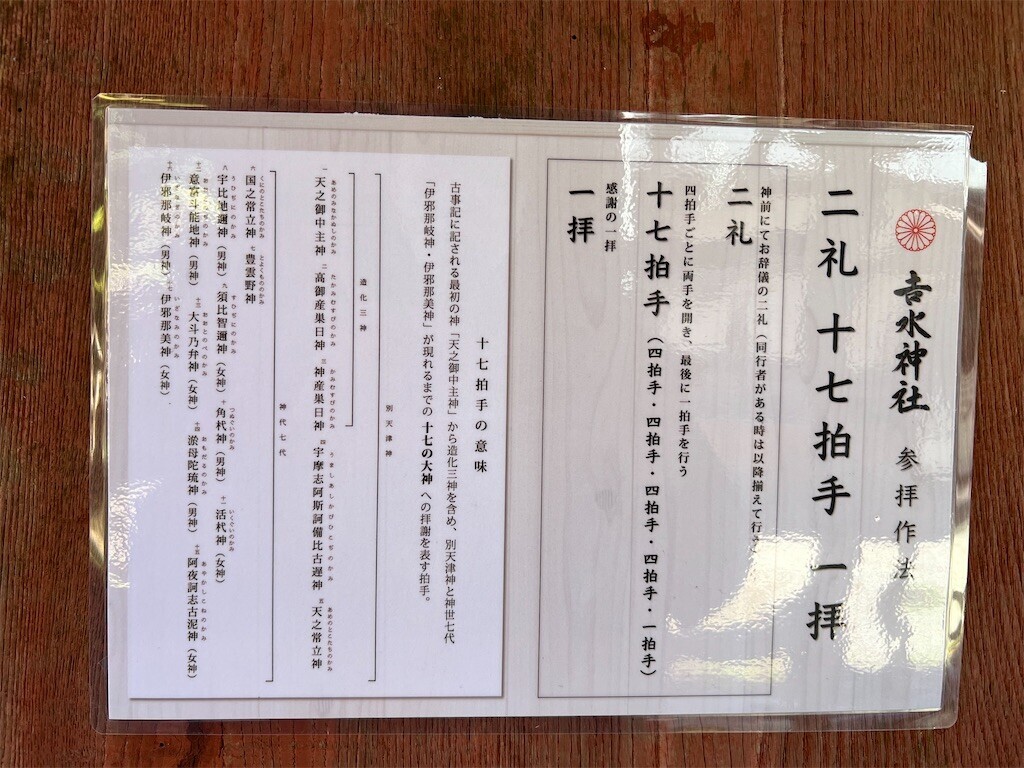 𠮷水神社 参拝作法
二礼 十七拍手 一拝
神前にてお辞儀の二礼(同行者がある時は以降揃えて行う)
二礼
四拍手ごとに両手を開き、最後に一拍手を行う
十七拍手(四拍手・四拍手・四拍手・四拍手・一拍手)
感謝の一拝
一拝
十七拍手の意味
古事記に記される最初の神「天之御中主神」から造化三神を含め、別天津神と神世七代
「伊邪那岐神・伊邪那美神」が現れるまでの十七の大神への拝謝を表す拍手。
別天津神
造化三神
あめのみなかぬしのかみ たかみむすびのかみ かみむすびのかみ うましあしかびひこぢのかみ あめのとこたちのかみ
一 天之御中主神 二 高御産巣日神 三 神産巣日神 四 宇摩志阿斯訶備比古遅神 五 天之常立神
神代七代
くにのとこたちのかみ とよくものかみ
六 国之常立神 七 豊雲野神
うひぢにのかみ すひぢにのかみ つぬぐいのかみ いくぐいのかみ
八 宇比地邇神(男神) 九 須比智邇神(女神) 十 角杙神(男神) 十一 活杙神(女神)
おおとのべのかみ おもだるのかみ あやかしこねのかみ
意富斗能地神(男神) 十三 大斗乃弁神(女神) 十四 淤母陀琉神(男神) 十五 阿夜訶志古泥神(女神)
いざなみのかみ
伊邪那岐神(男神) 伊邪那美神(女神)